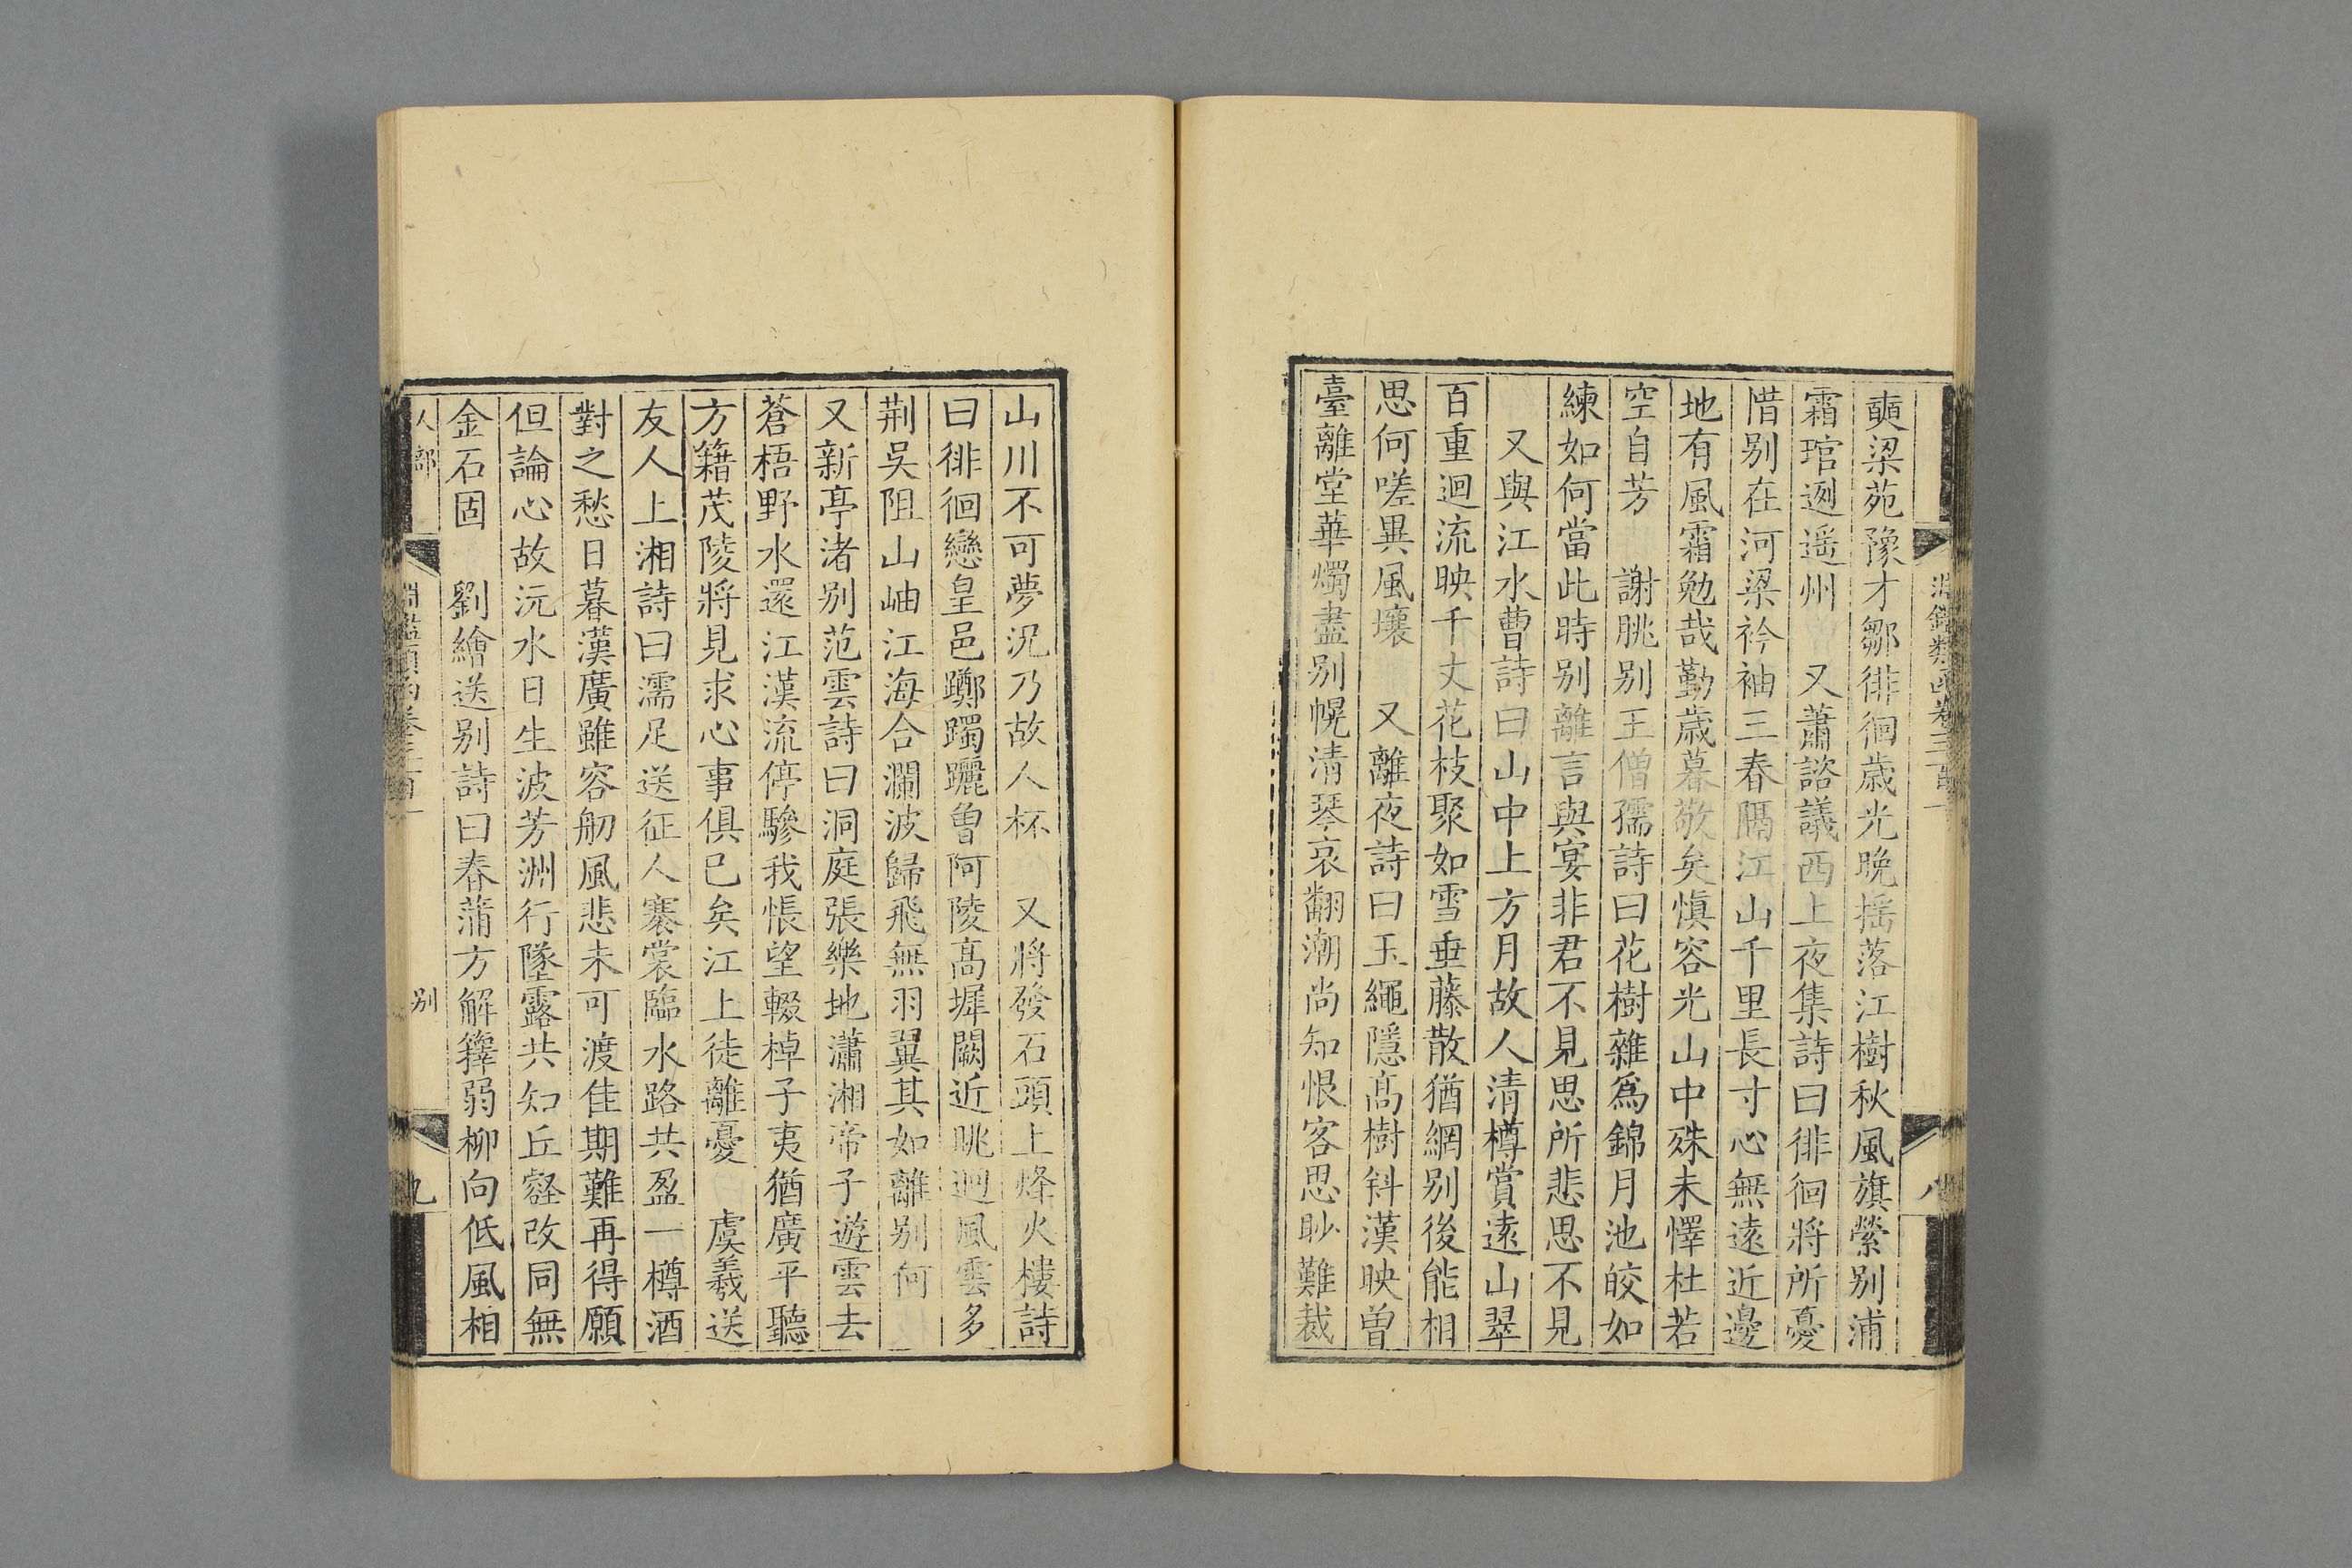 奭梁苑豫才鄒徘徊歲光晚揺落江樹秋風旗縈别浦
霜琯迾遥州　又蕭諮議西上夜集詩曰徘徊將所憂
惜别在河梁衿袖三春隔江山千里長寸心無遠近邊
地有風霜勉哉勤歲暮敬矣慎容光山中殊未懌杜若
空自芳　謝朓别王僧孺詩曰花樹雜爲錦月池皎如
練如何當此時别離言與宴非君不見思所悲思不見
又與江水曹詩曰山中上方月故人清樽賞遠山翠
百重迴流映千丈花枝聚如雪垂藤散猶網别後能相
思何嗟異風壤　又離夜詩曰玉繩隱髙樹斜漢映曽
臺離堂華燭盡别幌清琴哀翻潮尚知恨客思眇難裁
山川不可夢況乃故人杯　又將發石頭上烽火樓詩
曰徘徊戀皇邑躑躅躧曽阿陵髙墀闕近眺迥風雲多
荆吳阻山岫江海合瀾波歸飛無羽翼其如離别何
又新亭渚别范雲詩曰洞庭張樂地瀟湘帝子遊雲去
蒼梧野水還江漢流停驂我悵望輟棹子夷猶廣平聽
方籍茂陵將見求心事俱巳矣江上徒離憂　虞羲送
友人上湘詩曰濡足送征人褰裳臨水路共盈一樽酒
對之愁日暮漢廣雖容舠風悲未可渡佳期難再得願
但論心故沅水日生波芳洲行墜露共知丘壑改同無
金石固　劉繪送别詩曰春蒲方解籜弱柳向低風相
人部
淵鑑類函卷三百一
别
九